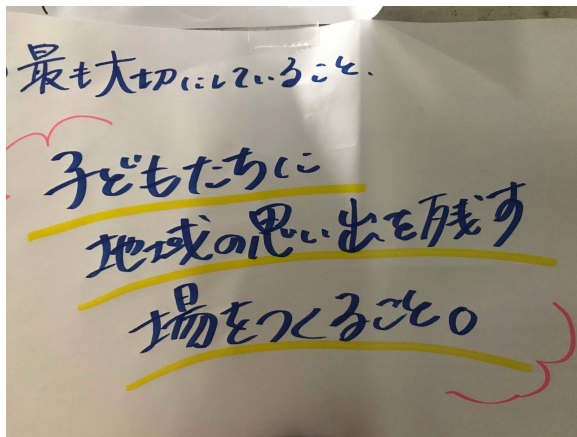 最も大切にしていること.
子どもたちに
地域の思い出を残す
場をつくること。